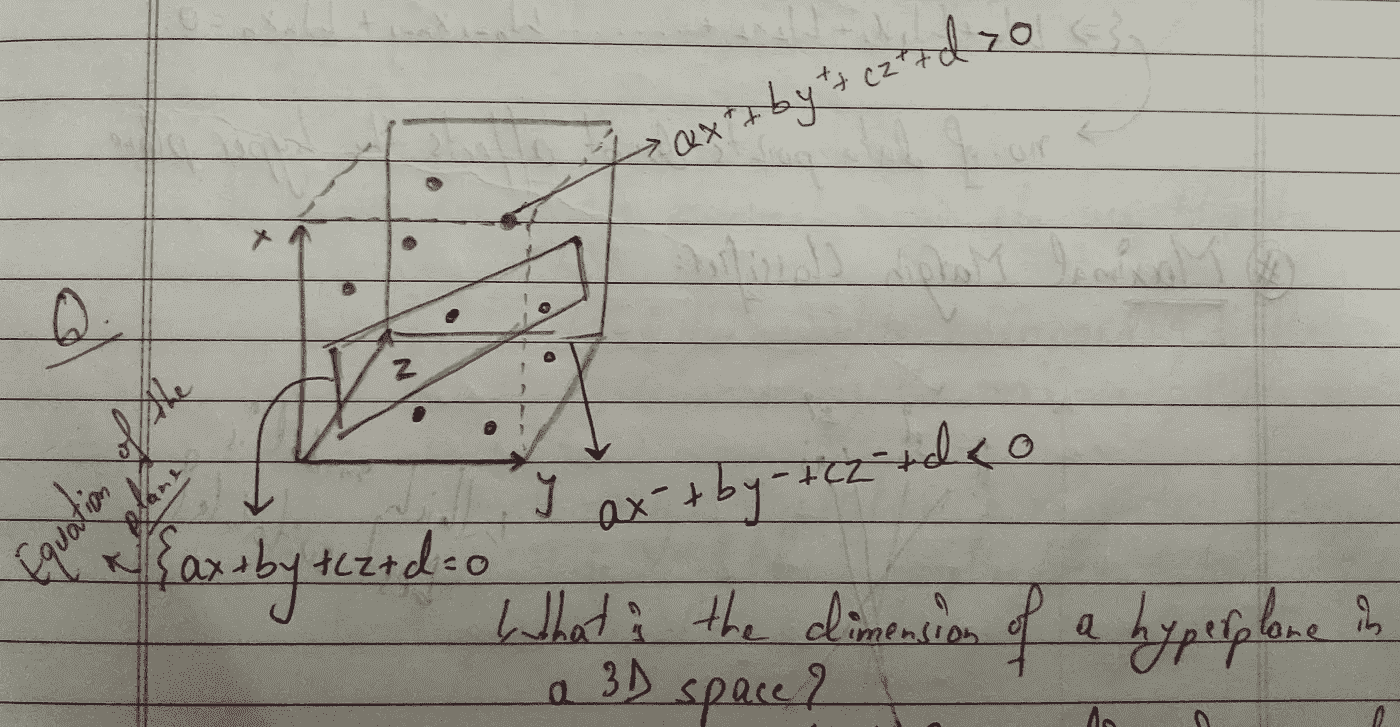 ax⁺ + by⁺ + cz⁺ + d > 0
x
Q.
z
y
ax⁻ + by⁻ + cz⁻ + d < 0
Equation of the
plane
{ax+by+cz+d=0
What is the dimension of a hyperplane in
a 3D space?